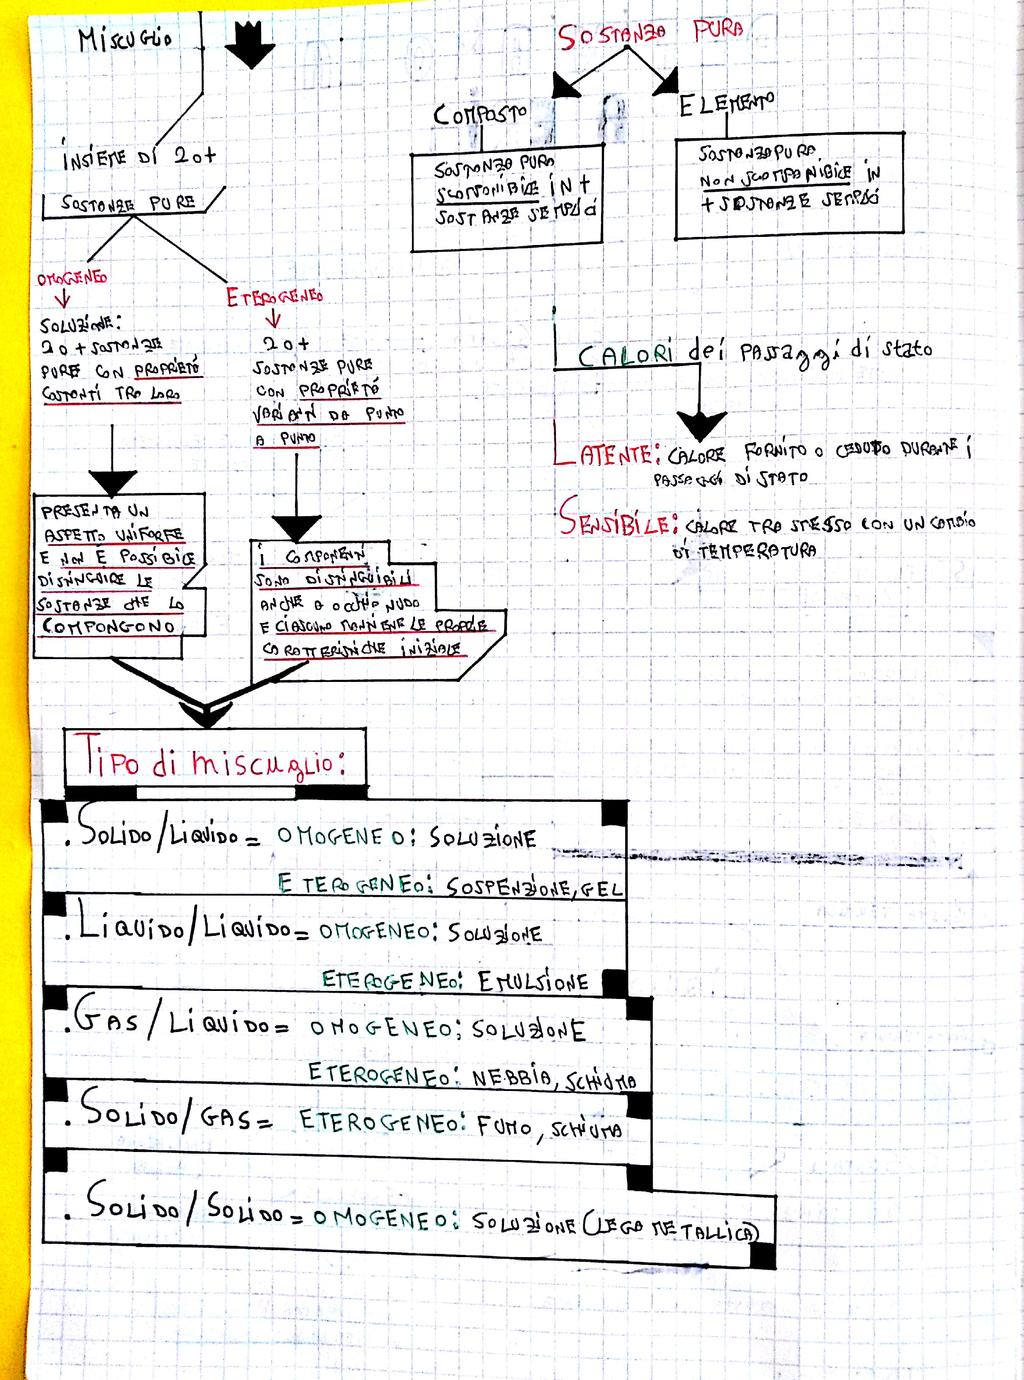 MISCUGLIO
INSIEME DI 2 O +
SOSTANZE PURE
OMOGENEO
SOLUZIONE:
2 O + SOSTANZE
PURE CON PROPRIETÁ
COSTANTI TRA LORO
PRESENTA UN
ASPETTO UNIFORFE
E NON È POSSIBILE
DISTINGUIRE LE
SOSTANZE CHE LO
COMPONGONO
ETEROGENEO
2 O +
SOSTANZE PURE
CON PROPRIETÁ
VARIANTI DA PUNTO
A PUNTO
I COMPONENTI
SONO DISTINGUIBILI
ANCHE A OCCHIO NUDO
E CIASCUNO MANTIENE LE PROPRIE
CARATTERISTICHE INIZIALE
SOSTANZA PURA
COMPOSTO
SOSTANZA PURA
SCOMPONIBILE IN +
SOSTANZE SEMPLICI
ELEMENTO
SOSTANZA PURA
NON SCOMPONIBILE IN
+ SOSTANZE SEMPLICI
I CALORI dei PASSAGGI di stato
LATENTE: CALORE FORNITO O CEDUTO DURANTE I
PASSAGGI DI STATO
SENSIBILE: CALORE TRASMESSO CON UN CAMBIO
DI TEMPERATURA
TIPO di MISCUGLIO:
. SOLIDO/LIQUIDO = OMOGENEO: SOLUZIONE
ETEROGENEO: SOSPENZIONE, GEL
. LIQUIDO/LIQUIDO = OMOGENEO: SOLUZIONE
ETEROGENEO: EMULSIONE
. GAS/LIQUIDO = OMOGENEO: SOLUZIONE
ETEROGENEO: NEBBIA, SCHIUMA
. SOLIDO/GAS = ETEROGENEO: FUMO, SCHIUMA
. SOLIDO/SOLIDO = OMOGENEO: SOLUZIONE (LEGA METALLICA)